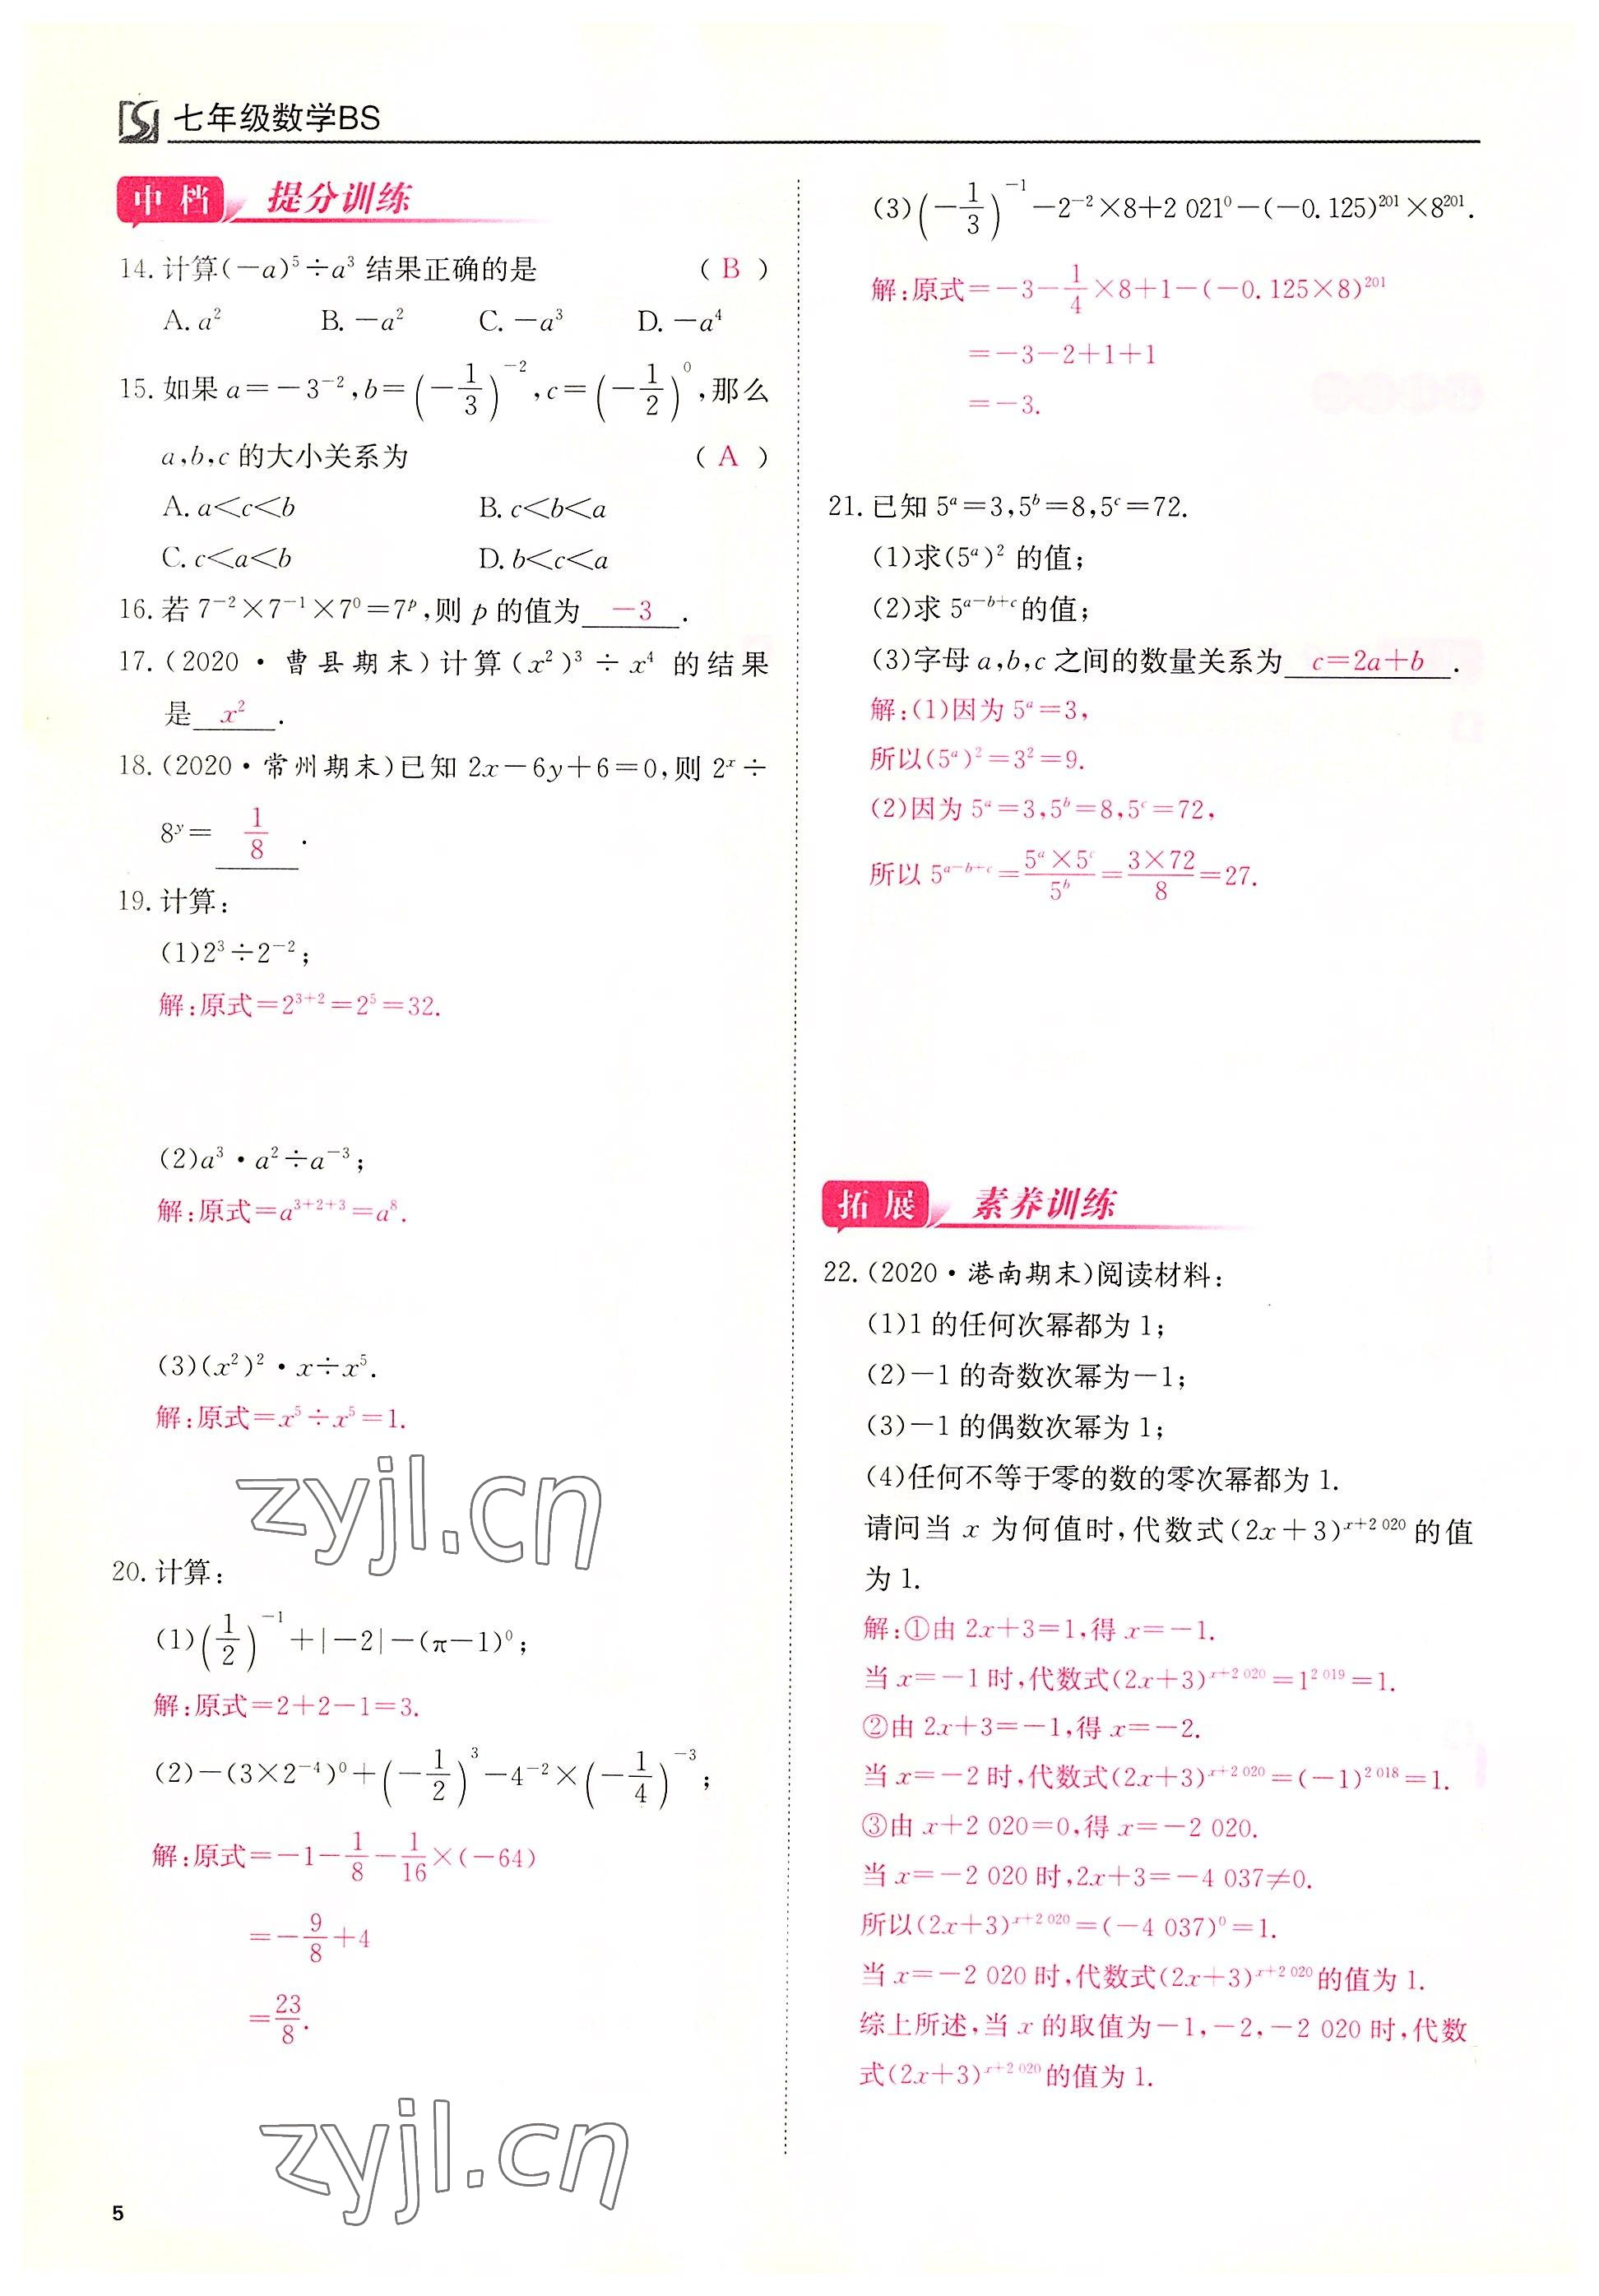 七年级数学BS
中档 提分训练
14. 计算(－a)⁵÷a³ 结果正确的是 ( B )
A. a² B. －a² C. －a³ D. －a⁴
15. 如果 a＝－3⁻²,b＝(－1/3)⁻²,c＝(－1/2)⁰,那么
a,b,c 的大小关系为 ( A )
A. a＜c＜b B. c＜b＜a
C. c＜a＜b D. b＜c＜a
16. 若 7⁻²×7⁻¹×7⁰＝7ᵖ,则 p 的值为 －3 .
17. (2020·曹县期末)计算(x²)³÷x⁴ 的结果
是 x² .
18. (2020·常州期末)已知 2x－6y＋6＝0,则 2ˣ÷
8ʸ＝ 1/8 .
19. 计算:
(1)2³÷2⁻²;
解:原式＝2³⁺²＝2⁵＝32.
(2)a³·a²÷a⁻³;
解:原式＝a³⁺²⁺³＝a⁸.
(3)(x²)²·x÷x⁵.
解:原式＝x⁵÷x⁵＝1.
zyjl.cn
20. 计算:
(1)(1/2)⁻¹＋|－2|－(π－1)⁰;
解:原式＝2＋2－1＝3.
(2)－(3×2⁻⁴)⁰＋(－1/2)³－4⁻²×(－1/4)⁻³;
解:原式＝－1－1/8－1/16×(－64)
＝－9/8＋4
＝23/8.
zyjl.cn
5
(3)(－1/3)⁻¹－2⁻²×8＋2 021⁰－(－0.125)²⁰¹×8²⁰¹.
解:原式＝－3－1/4×8＋1－(－0.125×8)²⁰¹
＝－3－2＋1＋1
＝－3.
21. 已知 5ᵃ＝3,5ᵇ＝8,5ᶜ＝72.
(1)求(5ᵃ)² 的值;
(2)求 5ᵃ⁻ᵇ⁺ᶜ的值;
(3)字母 a,b,c 之间的数量关系为 c＝2a＋b .
解:(1)因为 5ᵃ＝3,
所以(5ᵃ)²＝3²＝9.
(2)因为 5ᵃ＝3,5ᵇ＝8,5ᶜ＝72,
所以 5ᵃ⁻ᵇ⁺ᶜ＝(5ᵃ×5ᶜ)/5ᵇ＝(3×72)/8＝27.
拓展 素养训练
22. (2020·港南期末)阅读材料:
(1)1 的任何次幂都为 1;
(2)－1 的奇数次幂为－1;
(3)－1 的偶数次幂为 1;
(4)任何不等于零的数的零次幂都为 1.
请问当 x 为何值时,代数式(2x＋3)ˣ⁺² ⁰²⁰的值
为 1.
解:①由 2x＋3＝1,得 x＝－1.
当 x＝－1 时,代数式(2x＋3)ˣ⁺² ⁰²⁰＝1² ⁰¹⁹＝1.
②由 2x＋3＝－1,得 x＝－2.
当 x＝－2 时,代数式(2x＋3)ˣ⁺² ⁰²⁰＝(－1)² ⁰¹⁸＝1.
③由 x＋2 020＝0,得 x＝－2 020.
当 x＝－2 020 时,2x＋3＝－4 037≠0.
所以(2x＋3)ˣ⁺² ⁰²⁰＝(－4 037)⁰＝1.
当 x＝－2 020 时,代数式(2x＋3)ˣ⁺² ⁰²⁰的值为 1.
综上所述,当 x 的取值为－1,－2,－2 020 时,代数
式(2x＋3)ˣ⁺² ⁰²⁰的值为 1.